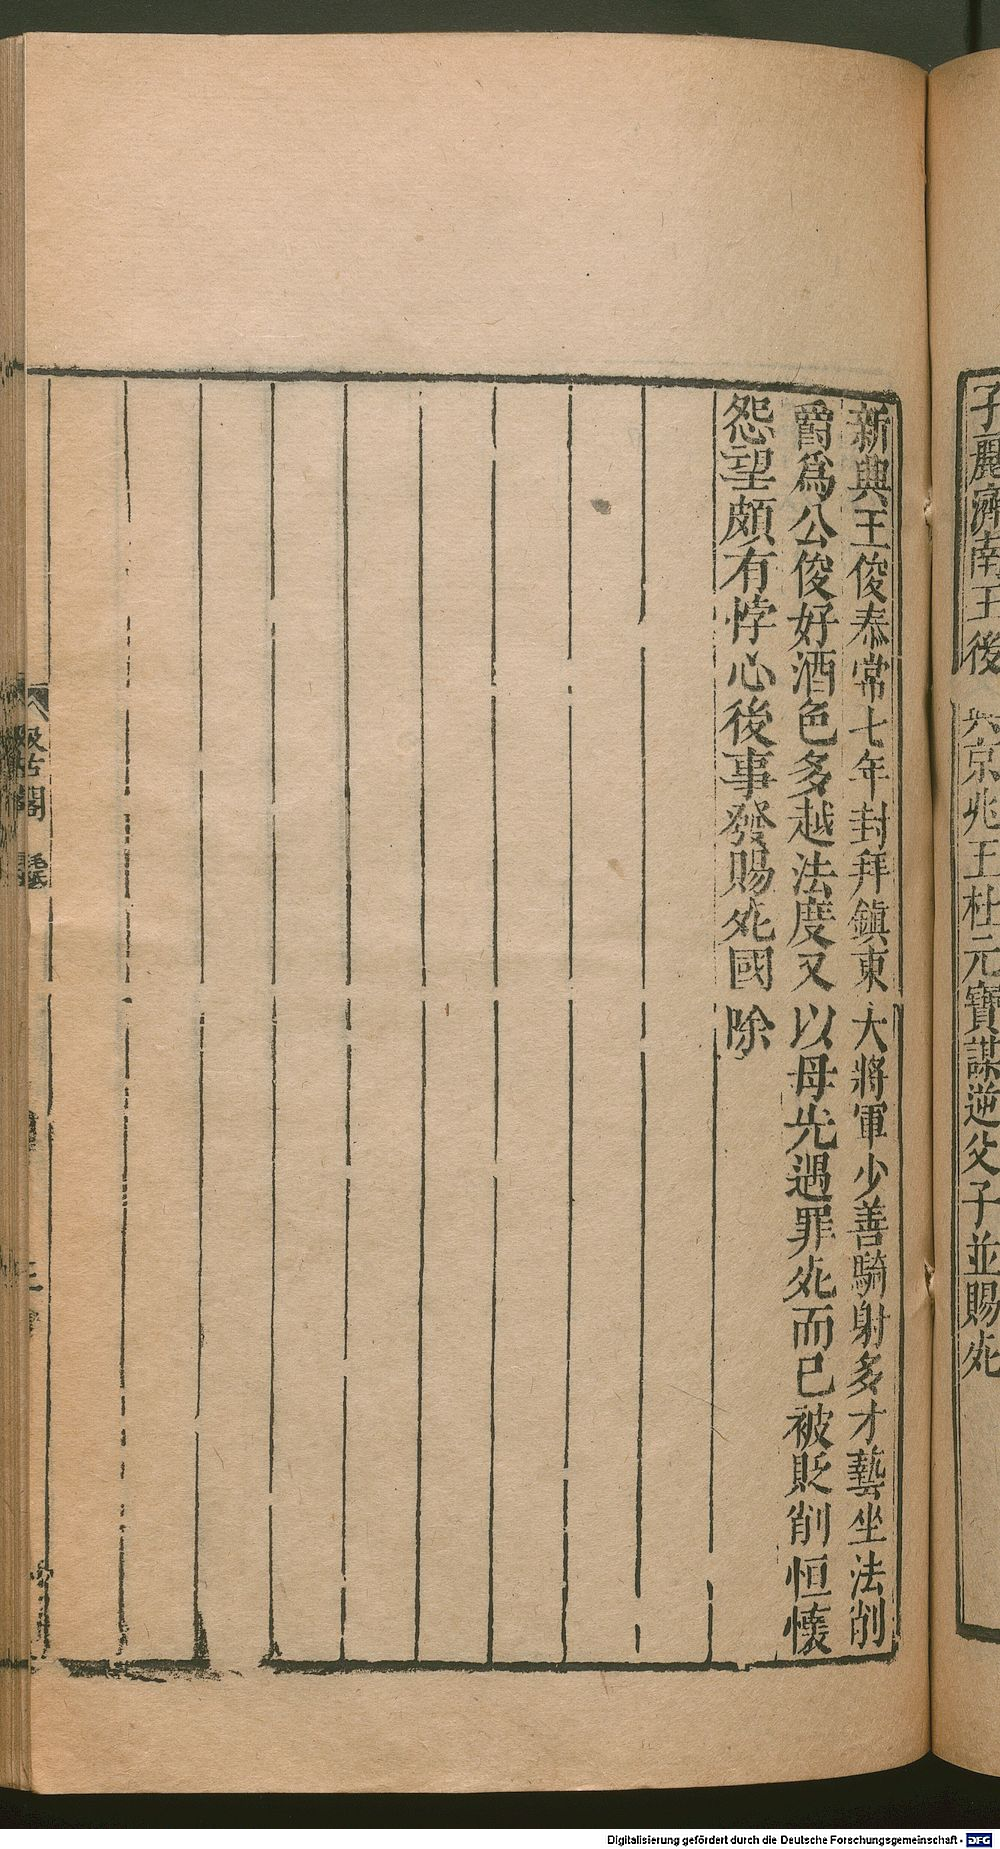 子麗濟南王後與京兆王杜元寶謀逆父子並賜死
新興王俊泰常七年封拜鎮東大將軍少善騎射多才藝坐法削
爵爲公俊好酒色多越法度又以母先遇罪死而已被貶削恒懷
怨望頗有悖心後事發賜死國除
汲古閣
毛氏
Digitalisierung gefördert durch die Deutsche Forschungsgemeinschaft - DFG